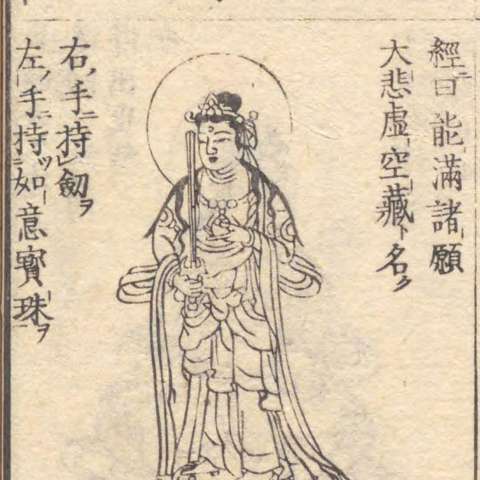 經ニ曰能滿諸願
大悲虛空藏ト名ク
右ノ手ニ持レ劔ヲ
左ノ手ニ持ツ如意寳珠ヲ